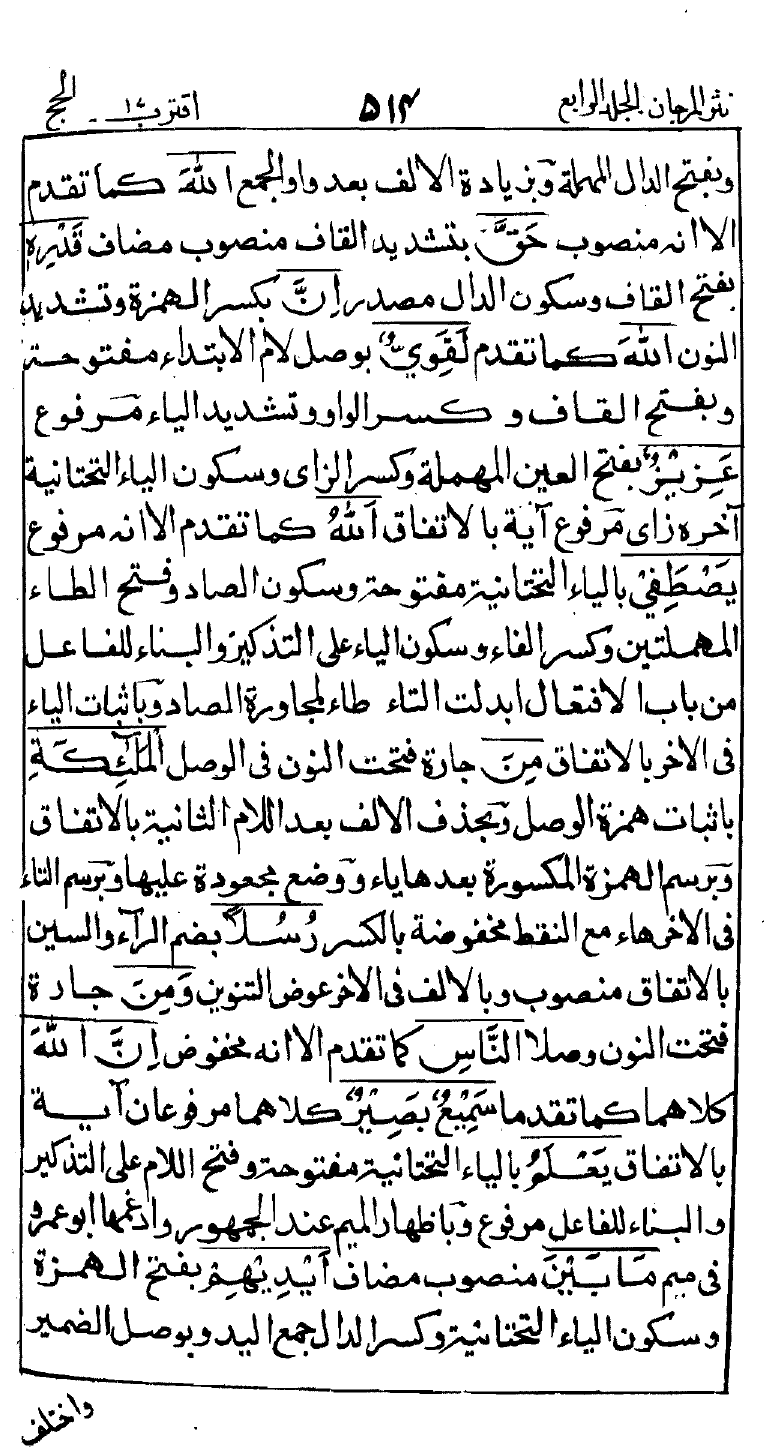 نثر المرجان الجلد الرابع ۵۱۴ اقترب ۱۷ - الحج
وبفتح الدال المهملة وبزيادة الالف بعد واو الجمع اللهَ كما تقدم
الا انه منصوب حَقَّ بتشديد القاف منصوب مضاف قَدْرِهٖ
بفتح القاف وسكون الدال مصدر اِنَّ بكسر الهمزة وتشديد
النون اللهَ كما تقدم لَقَوِيٌّ بوصل لام الابتداء مفتوحة
وبفتح القاف و كسر الواو وتشديد الياء مرفوع
عَزِيْزٌ بفتح العين المهملة وكسر الزاى وسكون الياء التحتانية
آخره زاى مرفوع آية بالاتفاق اَللهُ كما تقدم الا انه مرفوع
يَصْطَفِيْ بالياء التحتانية مفتوحة وسكون الصاد وفتح الطاء
المهملتين وكسر الفاء وسكون الياء على التذكير والبناء للفاعل
من باب الافتعال ابدلت التاء طاء لمجاورة الصاد وباثبات الياء
فى الاخر بالاتفاق مِنَ جارة فتحت النون فى الوصل الْمَلٰٓئِكَةِ
باثبات همزة الوصل وبحذف الالف بعد اللام الثانية بالاتفاق
وبرسم الهمزة المكسورة بعدها ياء ووضع مجعودة عليها وبرسم التاء
فى الاخر هاء مع النقط مخفوضة بالكسر رُسُلًا بضم الرآء والسين
بالاتفاق منصوب وبالالف فى الاخر عوض التنوين وَمِنَ جارة
فتحت النون وصلا النَّاسِ كما تقدم الا انه مخفوض اِنَّ اللهَ
كلاهما كما تقدما سَمِيْعٌۢ بَصِيْرٌ كلاهما مرفوعان آية
بالاتفاق يَعْلَمُ بالياء التحتانية مفتوحة وفتح اللام على التذكير
والبناء للفاعل مرفوع وباظهار الميم عند الجمهور وادغمها ابوعمرو
فى ميم مَا بَيْنَ منصوب مضاف اَيْدِيْهِمْ بفتح الهمزة
وسكون الياء التحتانية وكسر الدال جمع اليد وبوصل الضمير
واختلف